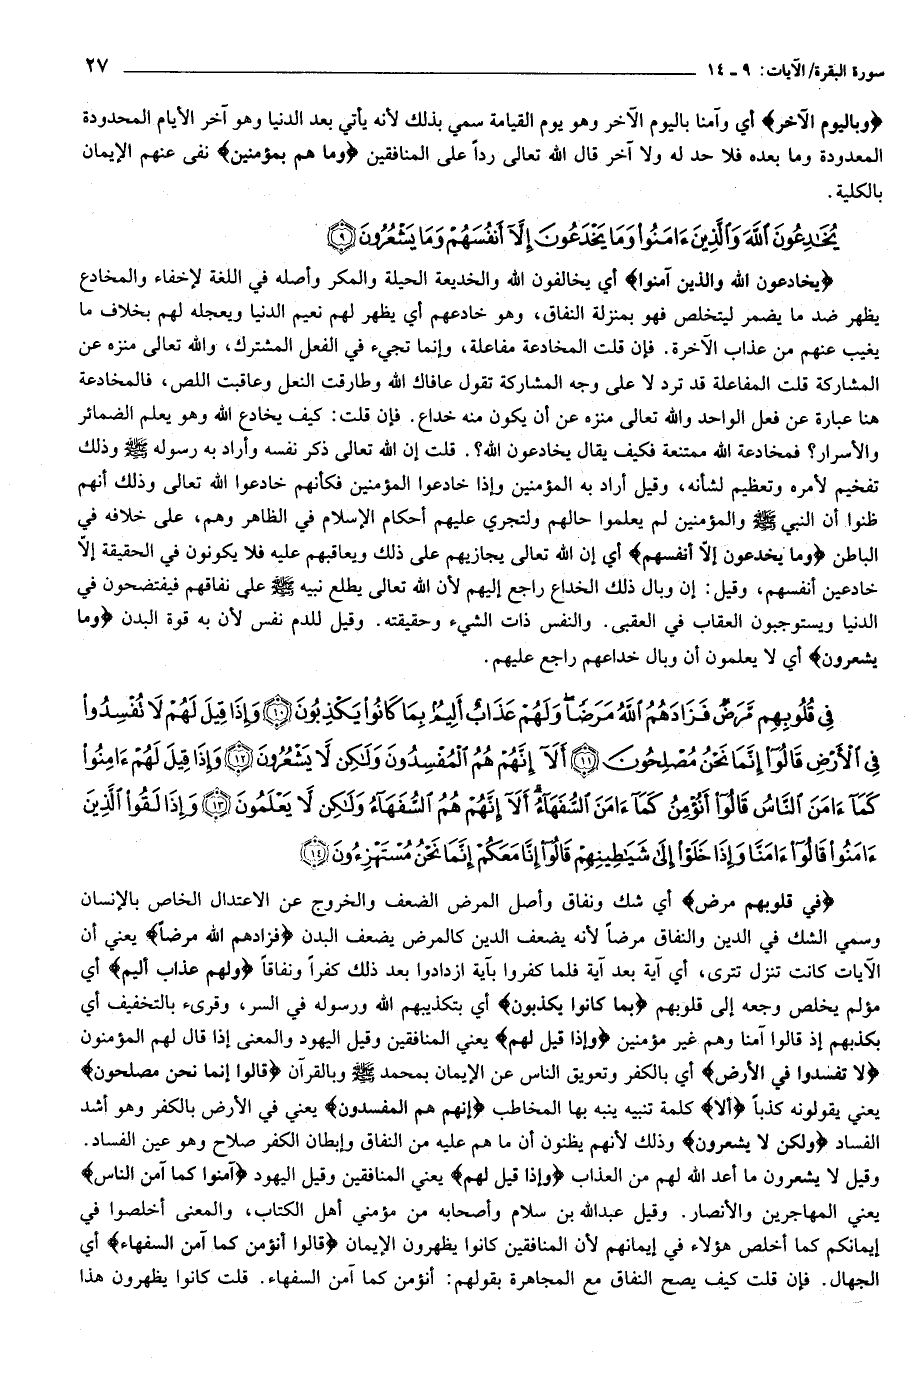 سورة البقرة/ الآيات: ٩ ـ ١٤ ٢٧
﴿وباليوم الآخر﴾ أي وآمنا باليوم الآخر وهو يوم القيامة سمي بذلك لأنه يأتي بعد الدنيا وهو آخر الأيام المحدودة
المعدودة وما بعده فلا حد له ولا آخر قال الله تعالى رداً على المنافقين ﴿وما هم بمؤمنين﴾ نفى عنهم الإيمان
بالكلية.
يُخَٰدِعُونَ ٱللَّهَ وَٱلَّذِينَ ءَامَنُوا۟ وَمَا يَخْدَعُونَ إِلَّآ أَنفُسَهُمْ وَمَا يَشْعُرُونَ ﴿٩﴾
﴿يخادعون الله والذين آمنوا﴾ أي يخالفون الله والخديعة الحيلة والمكر وأصله في اللغة لإخفاء والمخادع
يظهر ضد ما يضمر ليتخلص فهو بمنزلة النفاق، وهو خادعهم أي يظهر لهم نعيم الدنيا ويعجله لهم بخلاف ما
يغيب عنهم من عذاب الآخرة. فإن قلت المخادعة مفاعلة، وإنما تجيء في الفعل المشترك، والله تعالى منزه عن
المشاركة قلت المفاعلة قد ترد لا على وجه المشاركة تقول عافاك الله وطارقت النعل وعاقبت اللص، فالمخادعة
هنا عبارة عن فعل الواحد والله تعالى منزه عن أن يكون منه خداع. فإن قلت: كيف يخادع الله وهو يعلم الضمائر
والأسرار؟ فمخادعة الله ممتنعة فكيف يقال يخادعون الله؟. قلت إن الله تعالى ذكر نفسه وأراد به رسوله ﷺ وذلك
تفخيم لأمره وتعظيم لشأنه، وقيل أراد به المؤمنين وإذا خادعوا المؤمنين فكأنهم خادعوا الله تعالى وذلك أنهم
ظنوا أن النبي ﷺ والمؤمنين لم يعلموا حالهم ولتجري عليهم أحكام الإسلام في الظاهر وهم، على خلافه في
الباطن ﴿وما يخدعون إلّا أنفسهم﴾ أي إن الله تعالى يجازيهم على ذلك ويعاقبهم عليه فلا يكونون في الحقيقة إلّا
خادعين أنفسهم، وقيل: إن وبال ذلك الخداع راجع إليهم لأن الله تعالى يطلع نبيه ﷺ على نفاقهم فيفتضحون في
الدنيا ويستوجبون العقاب في العقبى. والنفس ذات الشيء وحقيقته. وقيل للدم نفس لأن به قوة البدن ﴿وما
يشعرون﴾ أي لا يعلمون أن وبال خداعهم راجع عليهم.
فِى قُلُوبِهِم مَّرَضٌ فَزَادَهُمُ ٱللَّهُ مَرَضًا ۖ وَلَهُمْ عَذَابٌ أَلِيمٌۢ بِمَا كَانُوا۟ يَكْذِبُونَ ﴿١٠﴾ وَإِذَا قِيلَ لَهُمْ لَا تُفْسِدُوا۟
فِى ٱلْأَرْضِ قَالُوٓا۟ إِنَّمَا نَحْنُ مُصْلِحُونَ ﴿١١﴾ أَلَآ إِنَّهُمْ هُمُ ٱلْمُفْسِدُونَ وَلَٰكِن لَّا يَشْعُرُونَ ﴿١٢﴾ وَإِذَا قِيلَ لَهُمْ ءَامِنُوا۟
كَمَآ ءَامَنَ ٱلنَّاسُ قَالُوٓا۟ أَنُؤْمِنُ كَمَآ ءَامَنَ ٱلسُّفَهَآءُ ۗ أَلَآ إِنَّهُمْ هُمُ ٱلسُّفَهَآءُ وَلَٰكِن لَّا يَعْلَمُونَ ﴿١٣﴾ وَإِذَا لَقُوا۟ ٱلَّذِينَ
ءَامَنُوا۟ قَالُوٓا۟ ءَامَنَّا وَإِذَا خَلَوْا۟ إِلَىٰ شَيَٰطِينِهِمْ قَالُوٓا۟ إِنَّا مَعَكُمْ إِنَّمَا نَحْنُ مُسْتَهْزِءُونَ ﴿١٤﴾
﴿في قلوبهم مرض﴾ أي شك ونفاق وأصل المرض الضعف والخروج عن الاعتدال الخاص بالإنسان
وسمي الشك في الدين والنفاق مرضاً لأنه يضعف الدين كالمرض يضعف البدن ﴿فزادهم الله مرضاً﴾ يعني أن
الآيات كانت تنزل تترى، أي آية بعد آية فلما كفروا بآية ازدادوا بعد ذلك كفراً ونفاقاً ﴿ولهم عذاب أليم﴾ أي
مؤلم يخلص وجعه إلى قلوبهم ﴿بما كانوا يكذبون﴾ أي بتكذيبهم الله ورسوله في السر، وقرىء بالتخفيف أي
بكذبهم إذ قالوا آمنا وهم غير مؤمنين ﴿وإذا قيل لهم﴾ يعني المنافقين وقيل اليهود والمعنى إذا قال لهم المؤمنون
﴿لا تفسدوا في الأرض﴾ أي بالكفر وتعويق الناس عن الإيمان بمحمد ﷺ وبالقرآن ﴿قالوا إنما نحن مصلحون﴾
يعني يقولونه كذباً ﴿ألا﴾ كلمة تنبيه ينبه بها المخاطب ﴿إنهم هم المفسدون﴾ يعني في الأرض بالكفر وهو أشد
الفساد ﴿ولكن لا يشعرون﴾ وذلك لأنهم يظنون أن ما هم عليه من النفاق وإبطان الكفر صلاح وهو عين الفساد.
وقيل لا يشعرون ما أعد الله لهم من العذاب ﴿وإذا قيل لهم﴾ يعني المنافقين وقيل اليهود ﴿آمنوا كما آمن الناس﴾
يعني المهاجرين والأنصار. وقيل عبدالله بن سلام وأصحابه من مؤمني أهل الكتاب، والمعنى أخلصوا في
إيمانكم كما أخلص هؤلاء في إيمانهم لأن المنافقين كانوا يظهرون الإيمان ﴿قالوا أنؤمن كما آمن السفهاء﴾ أي
الجهال. فإن قلت كيف يصح النفاق مع المجاهرة بقولهم: أنؤمن كما آمن السفهاء. قلت كانوا يظهرون هذا